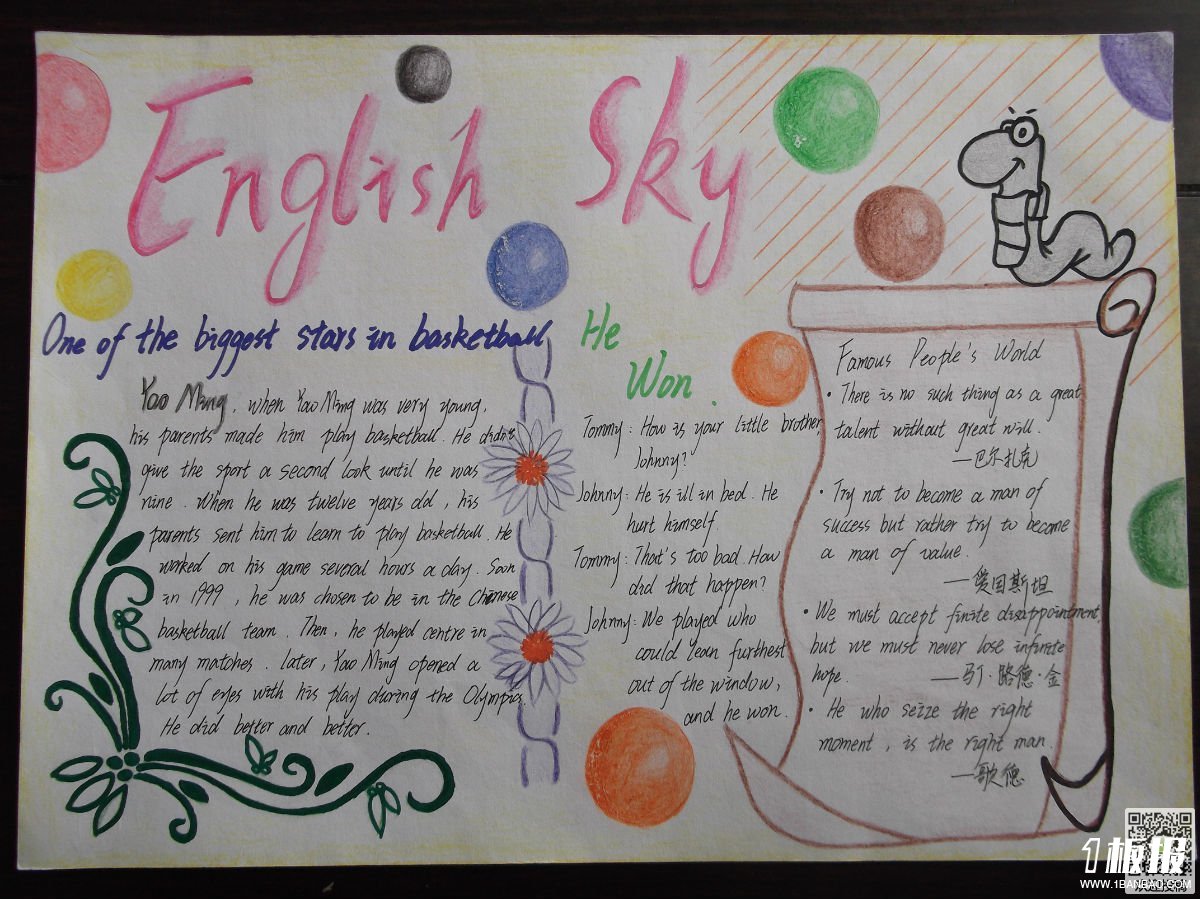 English Sky
One of the biggest stars in basketball
Yao Ming, when Yao Ming was very young,
his parents made him play basketball. He didn't
give the sport a second look until he was
nine. When he was twelve years old, his
parents sent him to learn to play basketball. He
worked on his game several hours a day. Soon
in 1999, he was chosen to be in the Chinese
basketball team. Then, he played centre in
many matches. later, Yao Ming opened a
lot of eyes with his play during the Olympics.
He did better and better.
He
Won.
Tommy: How is your little brother,
Johnny?
Johnny: He is ill in bed. He
hurt himself.
Tommy: That's too bad. How
did that happen?
Johnny: We played who
could lean furthest
out of the window,
and he won.
Famous People's World
• There is no such thing as a great
talent without great will.
—巴尔扎克
• Try not to become a man of
success but rather try to become
a man of value.
—爱因斯坦
• We must accept finite disappointment,
but we must never lose infinite
hope. —马丁·路德·金
• He who seize the right
moment, is the right man.
—歌德
1板报
WWW.1BANBAO.COM